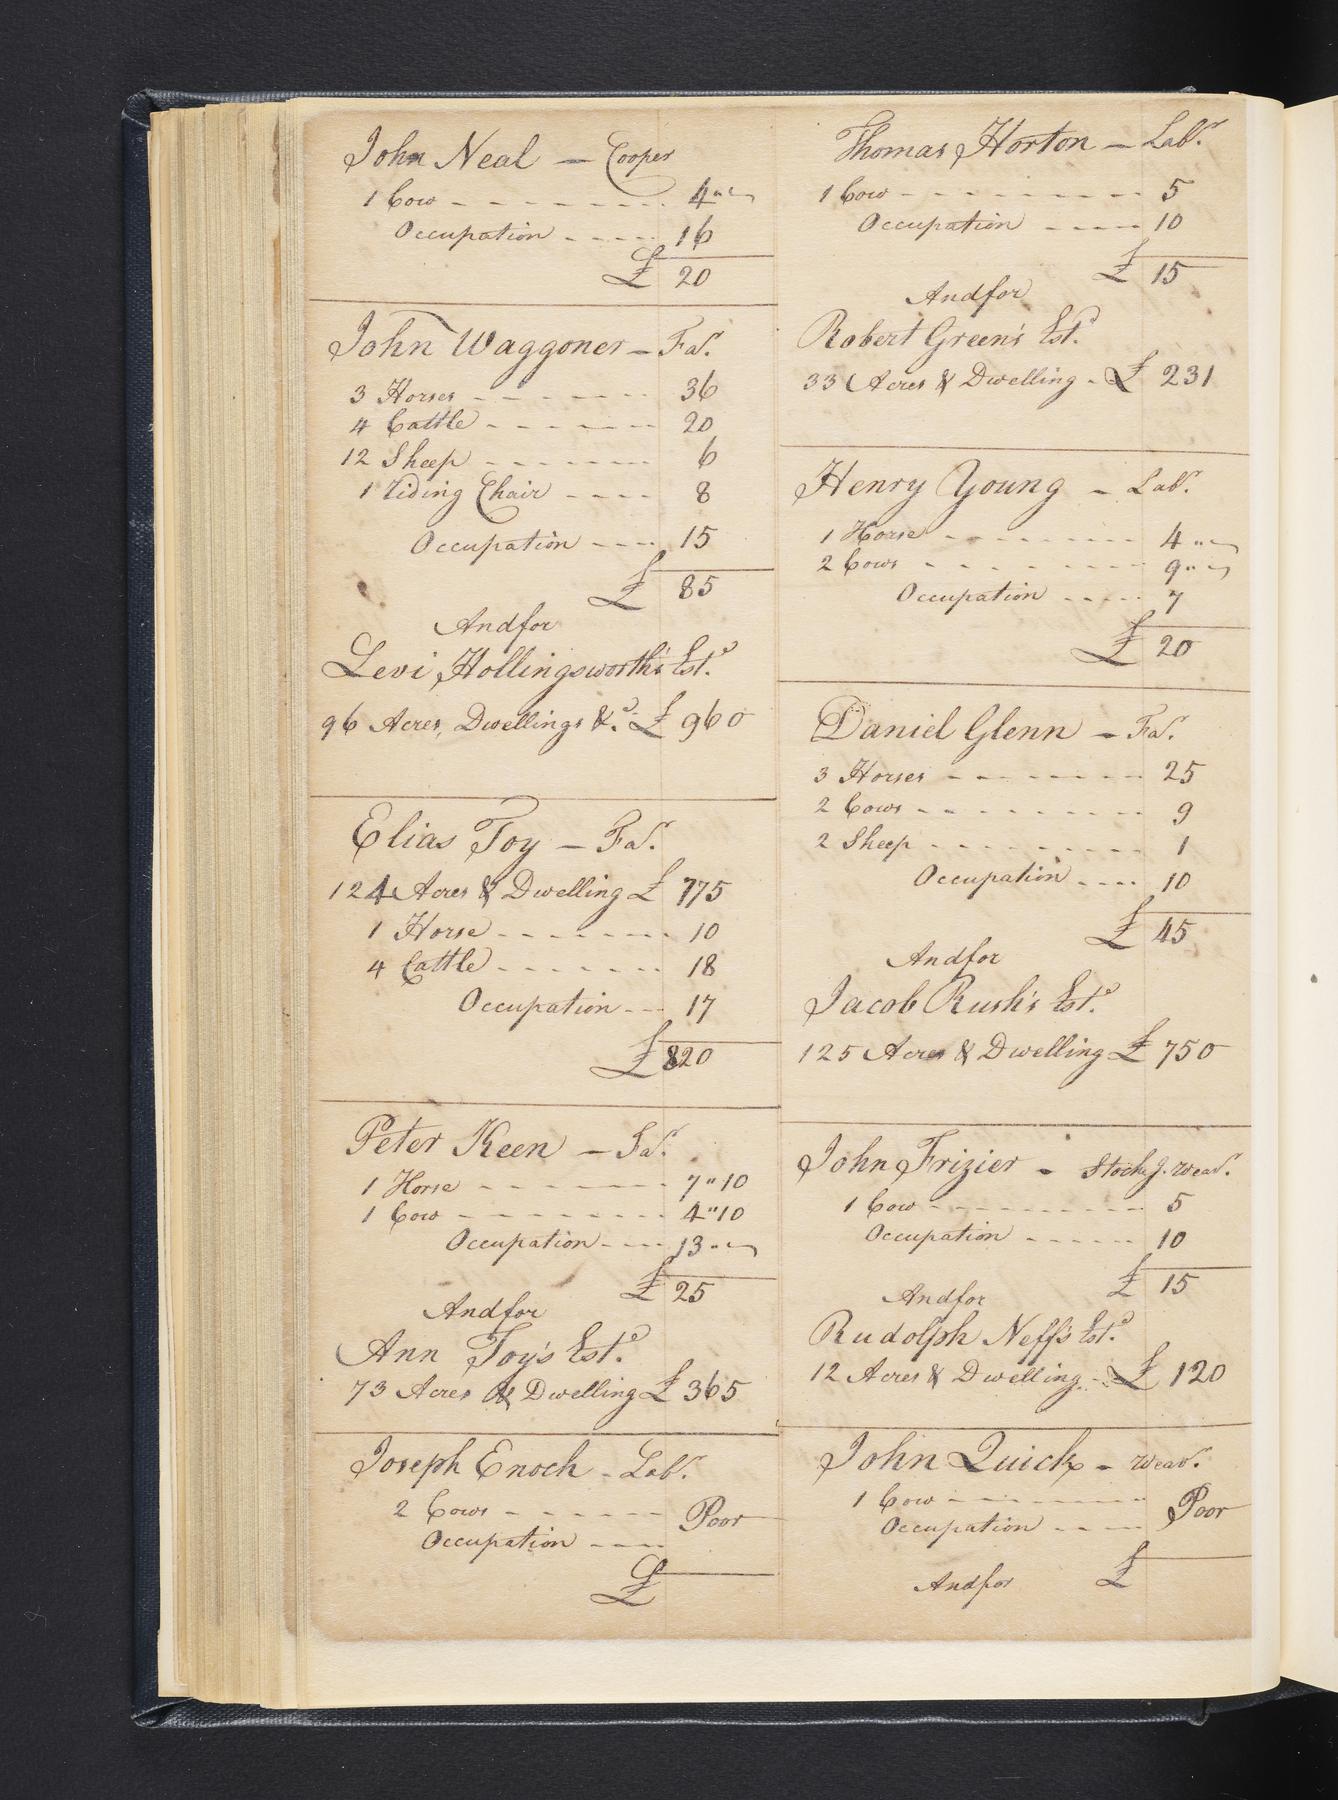 John Neal — Cooper
1 Cow - - - - - - - - 4 " "
Occupation - - - - 16
£ 20
John Waggoner — Far.
3 Horses - - - - - - - 36
4 Cattle - - - - - - - 20
12 Sheep - - - - - - - 6
1 Riding Chair - - - - 8
Occupation - - - - 15
£ 85
And for
Levi Hollingsworth's Estd.
96 Acres, Dwellings &c. £ 960
Elias Toy — Far.
124 Acres & Dwelling £ 775
1 Horse - - - - - - - 10
4 Cattle - - - - - - - 18
Occupation - - - 17
£ 820
Peter Keen — Far.
1 Horse - - - - - - - 7 " 10
1 Cow - - - - - - - - 4 " 10
Occupation - - - - 13 " "
£ 25
And for
Ann Toy's Este.
73 Acres & Dwelling £ 365
Joseph Enoch - Labr.
2 Cows - - - - - - - Poor
Occupation - - - -
£
Thomas Horton — Labr.
1 Cow - - - - - - - - 5
Occupation - - - - 10
£ 15
And for
Robert Green's Este.
33 Acres & Dwelling - £ 231
Henry Young - Labr.
1 Horse - - - - - - - - 4 " "
2 Cows - - - - - - - 9 " "
Occupation - - - - 7
£ 20
Daniel Glenn - Far.
3 Horses - - - - - - - 25
2 Cows - - - - - - - - 9
2 Sheep - - - - - - - - 1
Occupation - - - - 10
£ 45
And for
Jacob Rush's Este.
125 Acres & Dwelling £ 750
John Frizier - Stockg. Wear.
1 Cow - - - - - - - - 5
Occupation - - - - - - 10
£ 15
And for
Rudolph Neff's Este.
12 Acres & Dwelling - £ 120
John Quick - Wear.
1 Cow - - - - - - - - Poor
Occupation - - - -
And for £